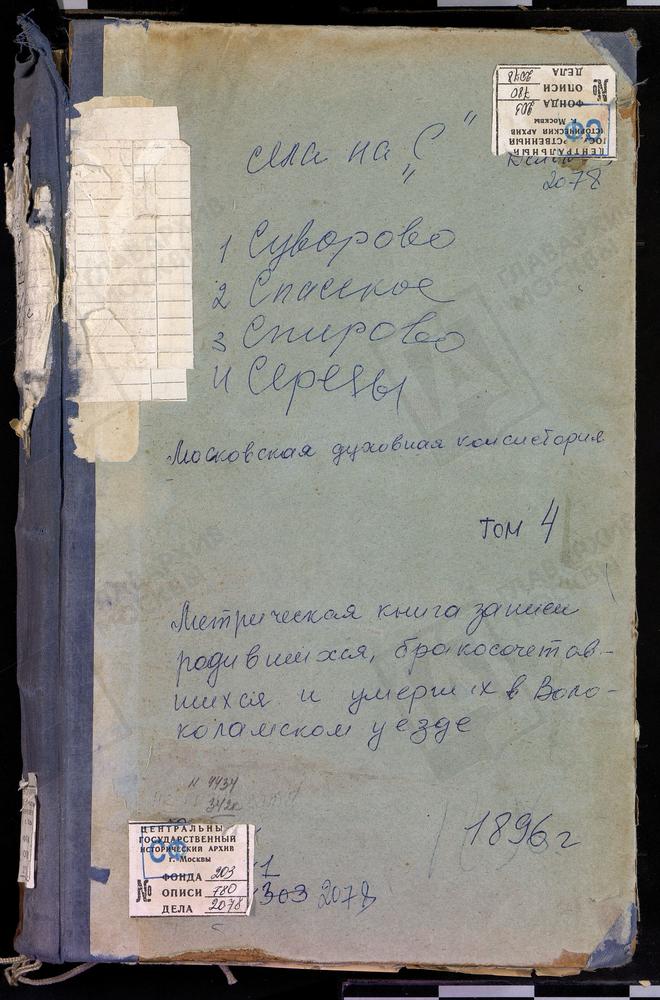 ЦЕНТРАЛЬНЫЙ
ГОСУДАРСТВЕННЫЙ
ИСТОРИЧЕСКИЙ АРХИВ
г. Москвы
ФОНДА 203
№ ОПИСИ 780
ДЕЛА 2078
СФ
2078
села на „С"
1 Суворово
2 Спасское
3 Спирово
4 Середы
Московская духовная консистория
том 4
Метрическая книга записи
родившихся, бракосочетав-
шихся и умерших в Воло-
коламском уезде
N 4434
342л
1896 г
ЦЕНТРАЛЬНЫ
ГОСУДАРСТВЕННЫЙ
ИСТОРИЧЕСКИЙ АРХИВ
г. Москвы
СФ
ФОНДА 203
№ ОПИСИ 780
ДЕЛА 2078
1
303 2078
ГЛАВАРХИВ
МОСКВЫ